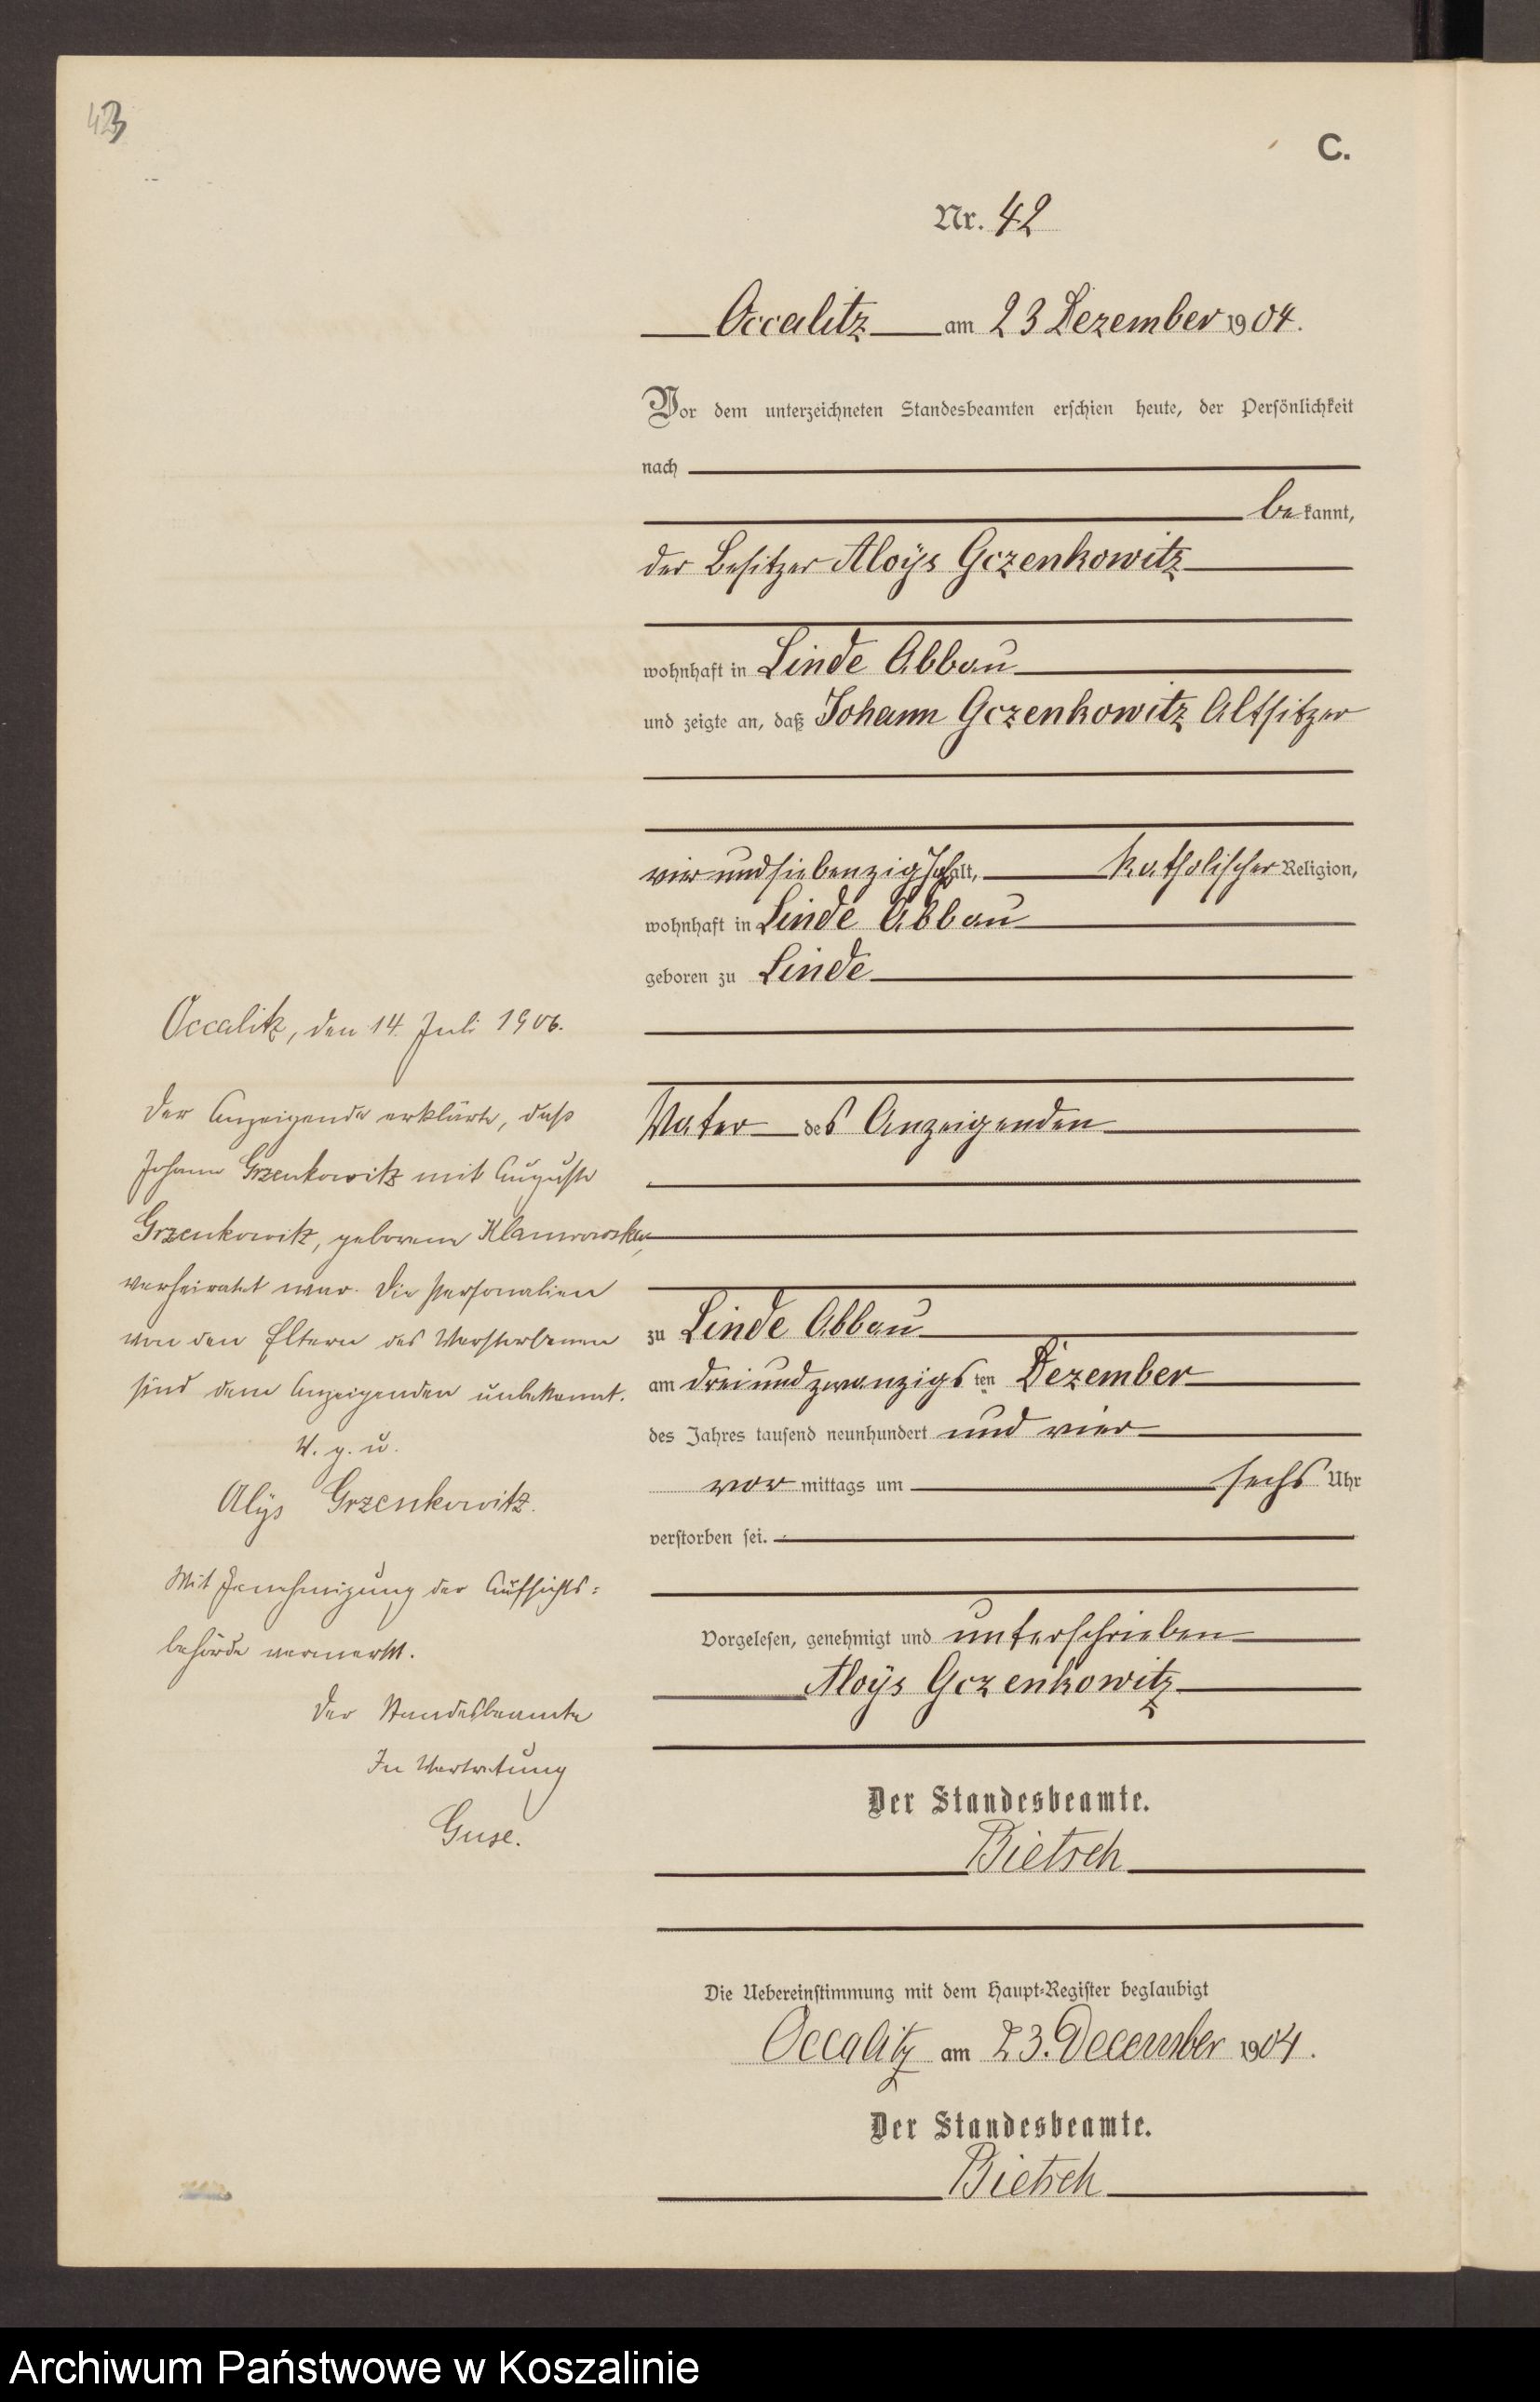 43
C.
Nr. 42
Occalitz am 23 Dezember 1904.
Vor dem unterzeichneten Standesbeamten erschien heute, der Persönlichkeit
nach
be kannt,
der Besitzer Aloÿs Gczenkowitz
wohnhaft in Linde Abbau
und zeigte an, daß Johann Gczenkowitz Altsitzer
vier und siebenzig Jahr alt, katholischer Religion,
wohnhaft in Linde Abbau
geboren zu Linde
Vater des Anzeigenden
zu Linde Abbau
am drei und zwanzigs ten Dezember
des Jahres tausend neunhundert und vier
vor mittags um sechs Uhr
verstorben sei.
Vorgelesen, genehmigt und unterschrieben
Aloÿs Gczenkowitz
Der Standesbeamte.
Bietsch
Die Uebereinstimmung mit dem Haupt-Register beglaubigt
Occalitz am 23. December 1904.
Der Standesbeamte.
Bietsch
Occalitz, den 14. Juli 1906.
Der Anzeigende erklärte, dass
Johann Grzenkowitz mit Auguste
Grzenkowitz, geborene
verheiratet war. Die Personalien
von den Eltern des Verstorbenen
sind dem Anzeigenden unbekannt.
V. g. u.
Alÿs Grzenkowitz.
Mit Genehmigung der Aufsichts=
behörde vermerkt.
Der Standesbeamte
In Vertretung
Guse.
Archiwum Państwowe w Koszalinie